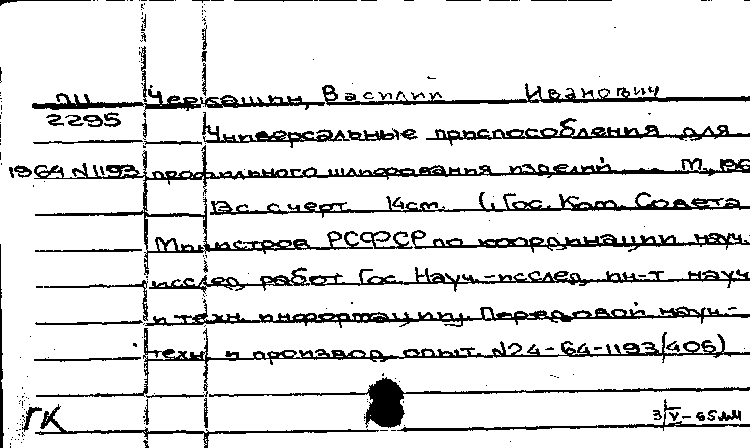 ПЦ Черкашин, Василий Иванович
2295
Универсальные приспособления для
1964 N1193 профильного шлифования изделий ... М., 196
13 с. с черт. 14см. (Гос. Ком. Совета
Министров РСФСР по координации науч.
исслед работ Гос. Науч.-исслед. ин-т науч
и техн. информации. Передовой науч.-
техн. и производ. опыт. N24-64-1193/406)
ГК
3/V-65